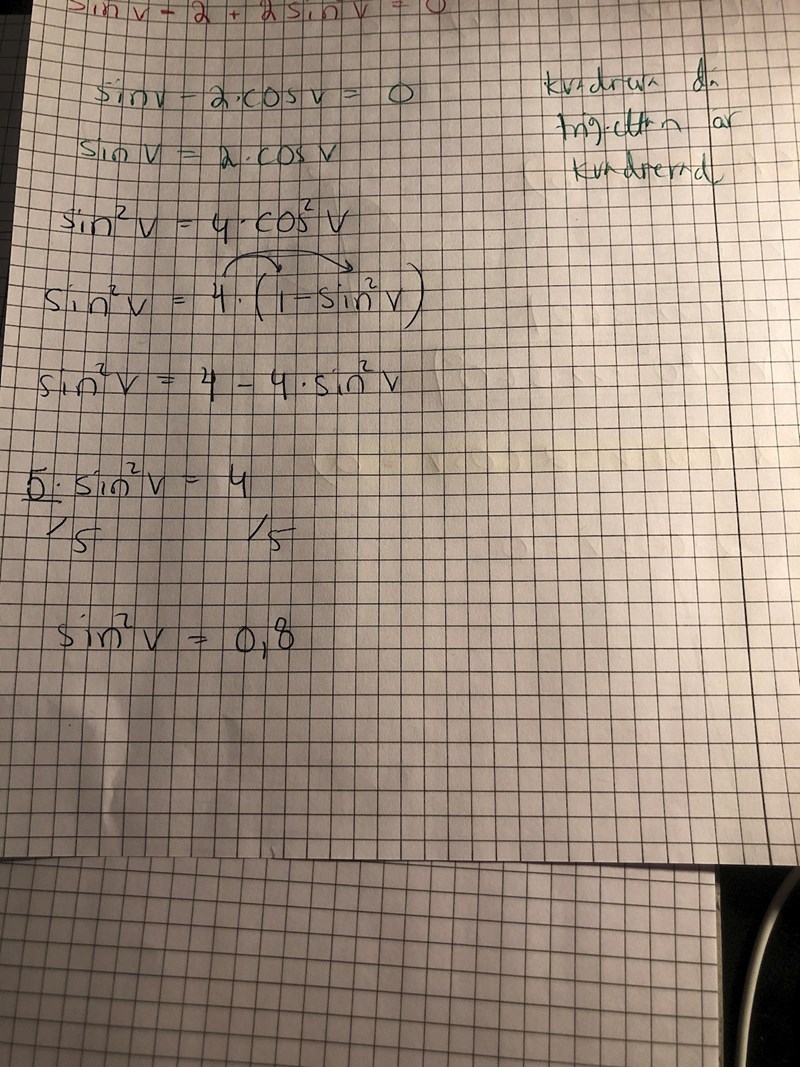 sin v - 2 + 2 sin v = 0
sin v - 2·cos v = 0
sin v = 2·cos v
sin²v = 4·cos²v
sin²v = 4·(1-sin²v)
sin²v = 4 - 4·sin²v
5·sin²v = 4
/5 /5
sin²v = 0,8
kvadrera då
trig.ettan är
kvadrerad